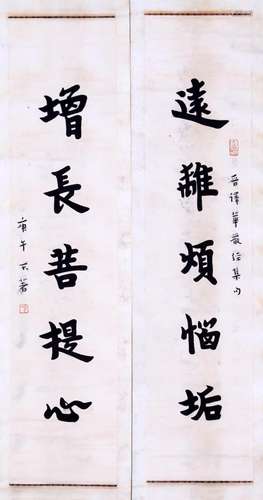 遠離煩惱垢
晉譯華嚴經集句
增長菩提心
庚午 不著